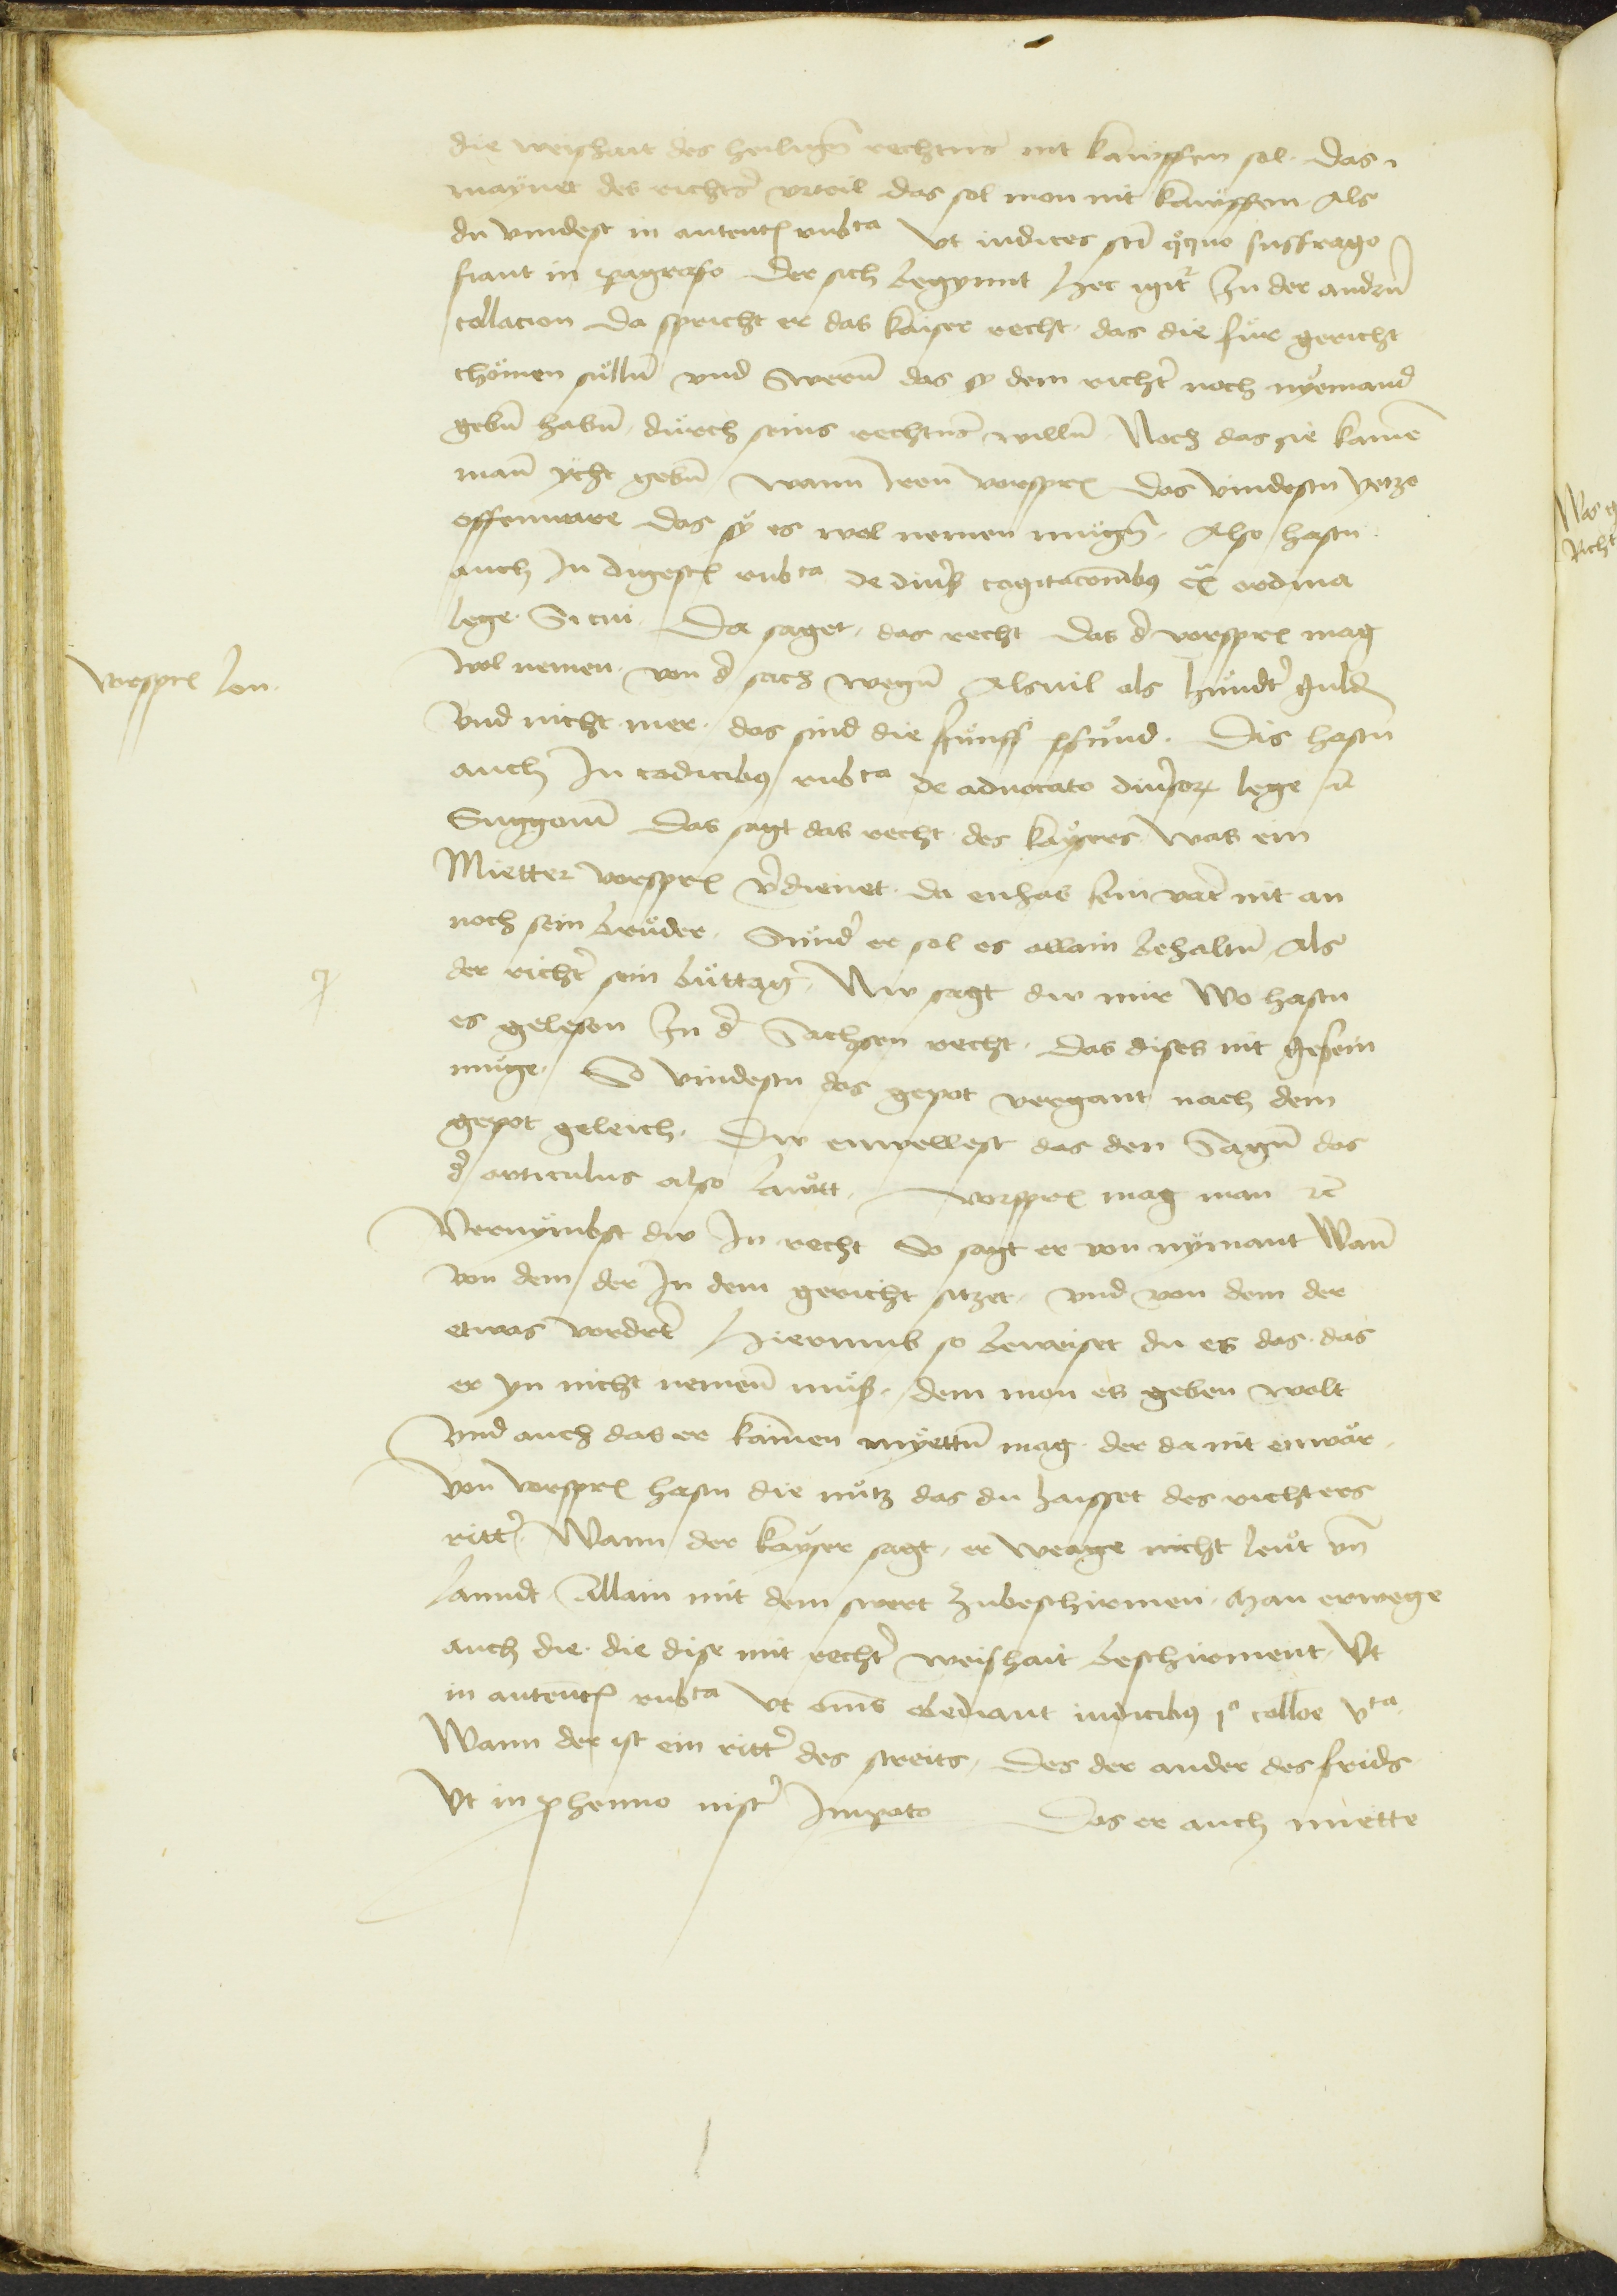 die weishait des heilign̄ rechtens nit kauffen sol. das
maÿnet des richtrs̄ vrteil das sol man nit kauffen Als
du vindest in autentꝭ rubca Vt iudices siue quoquo suffrago
fiant in pagrafo Der sich begynnt Hec igitr̄ In der andrn̄
collacion Da spricht er das kaiser recht. das die für gericht
chömen süllen̄ vnd Sweren̄ das sy dem richtr̄ noch nyemand
gebn̄ habn̄. durch seins rechtens willn̄. Noch das sie kaime
man̄ ycht gebn̄ wann iren̄ vorsprꝭ Das vindestu yetzo
offenware das sÿ es wol nemen mügn̄. Also hastu
auch In digestꝭ rubca de diuˀß cogitaconibꝰ ex̄ ordina
lege. Si cui. Da saget. das recht Das d̄ vorsprꝭ mag
wol nemen. von d̄ sach wegn̄ Alsuil als hundtˀ guld
Vnd nicht mer. das sind die fünff pfund. Dis hastu
auch In codicibꝰ rubca de aduocato diuˀsorꝝ lege
Suggoni Das sagt das recht des kaÿsers was ein
Mietter vorsprꝭ v̄dienet. da enhab sein vatˀ nit an
noch sein brüder. Sundˀ er sol es allain behaltn̄ Als
der richtˀ sein büttag. Nw sagt dw mir Wo hastu
es gelesen In d̄ Sachsen recht. das dises nit gesein
müge. So vindestu das gepot vergant nach dem
gepot geleich. Dw enwellest das den Sagn̄ das
d̄ articulus also lawtt. vorsprꝭ mag man ⁊c̄
Vernÿmbst dw In recht So sagt er von nÿmant Wan̄
von dem der In dem gericht sitzet. vnd von dem der
etwas vordrt̄ Hierumb so beweiset du es das. das
er yn nicht nemen̄ müß. dem man es geben wolt
Vnd auch das er kainen myettn̄ mag. der da nit enwär.
von vorsprꝭ hastu die nutz das du haisset des richters
rittˀ. Wann der kaÿser sagt. er weage nicht leut vn̄
lanndt Allain mit dem swert zubeschirmen. Man erwege
auch die. die dise mit rechtˀ weishait beschirment. Vt
in autentꝭ rubca Vt om̄s obediant iudicibꝰ 1o colloe vta.
Wann der ist ein rittˀ des streits. Des der ander des frids.
Vt in phemio nistˀ Inpato Das er auch miette
vorsprꝭ lon.